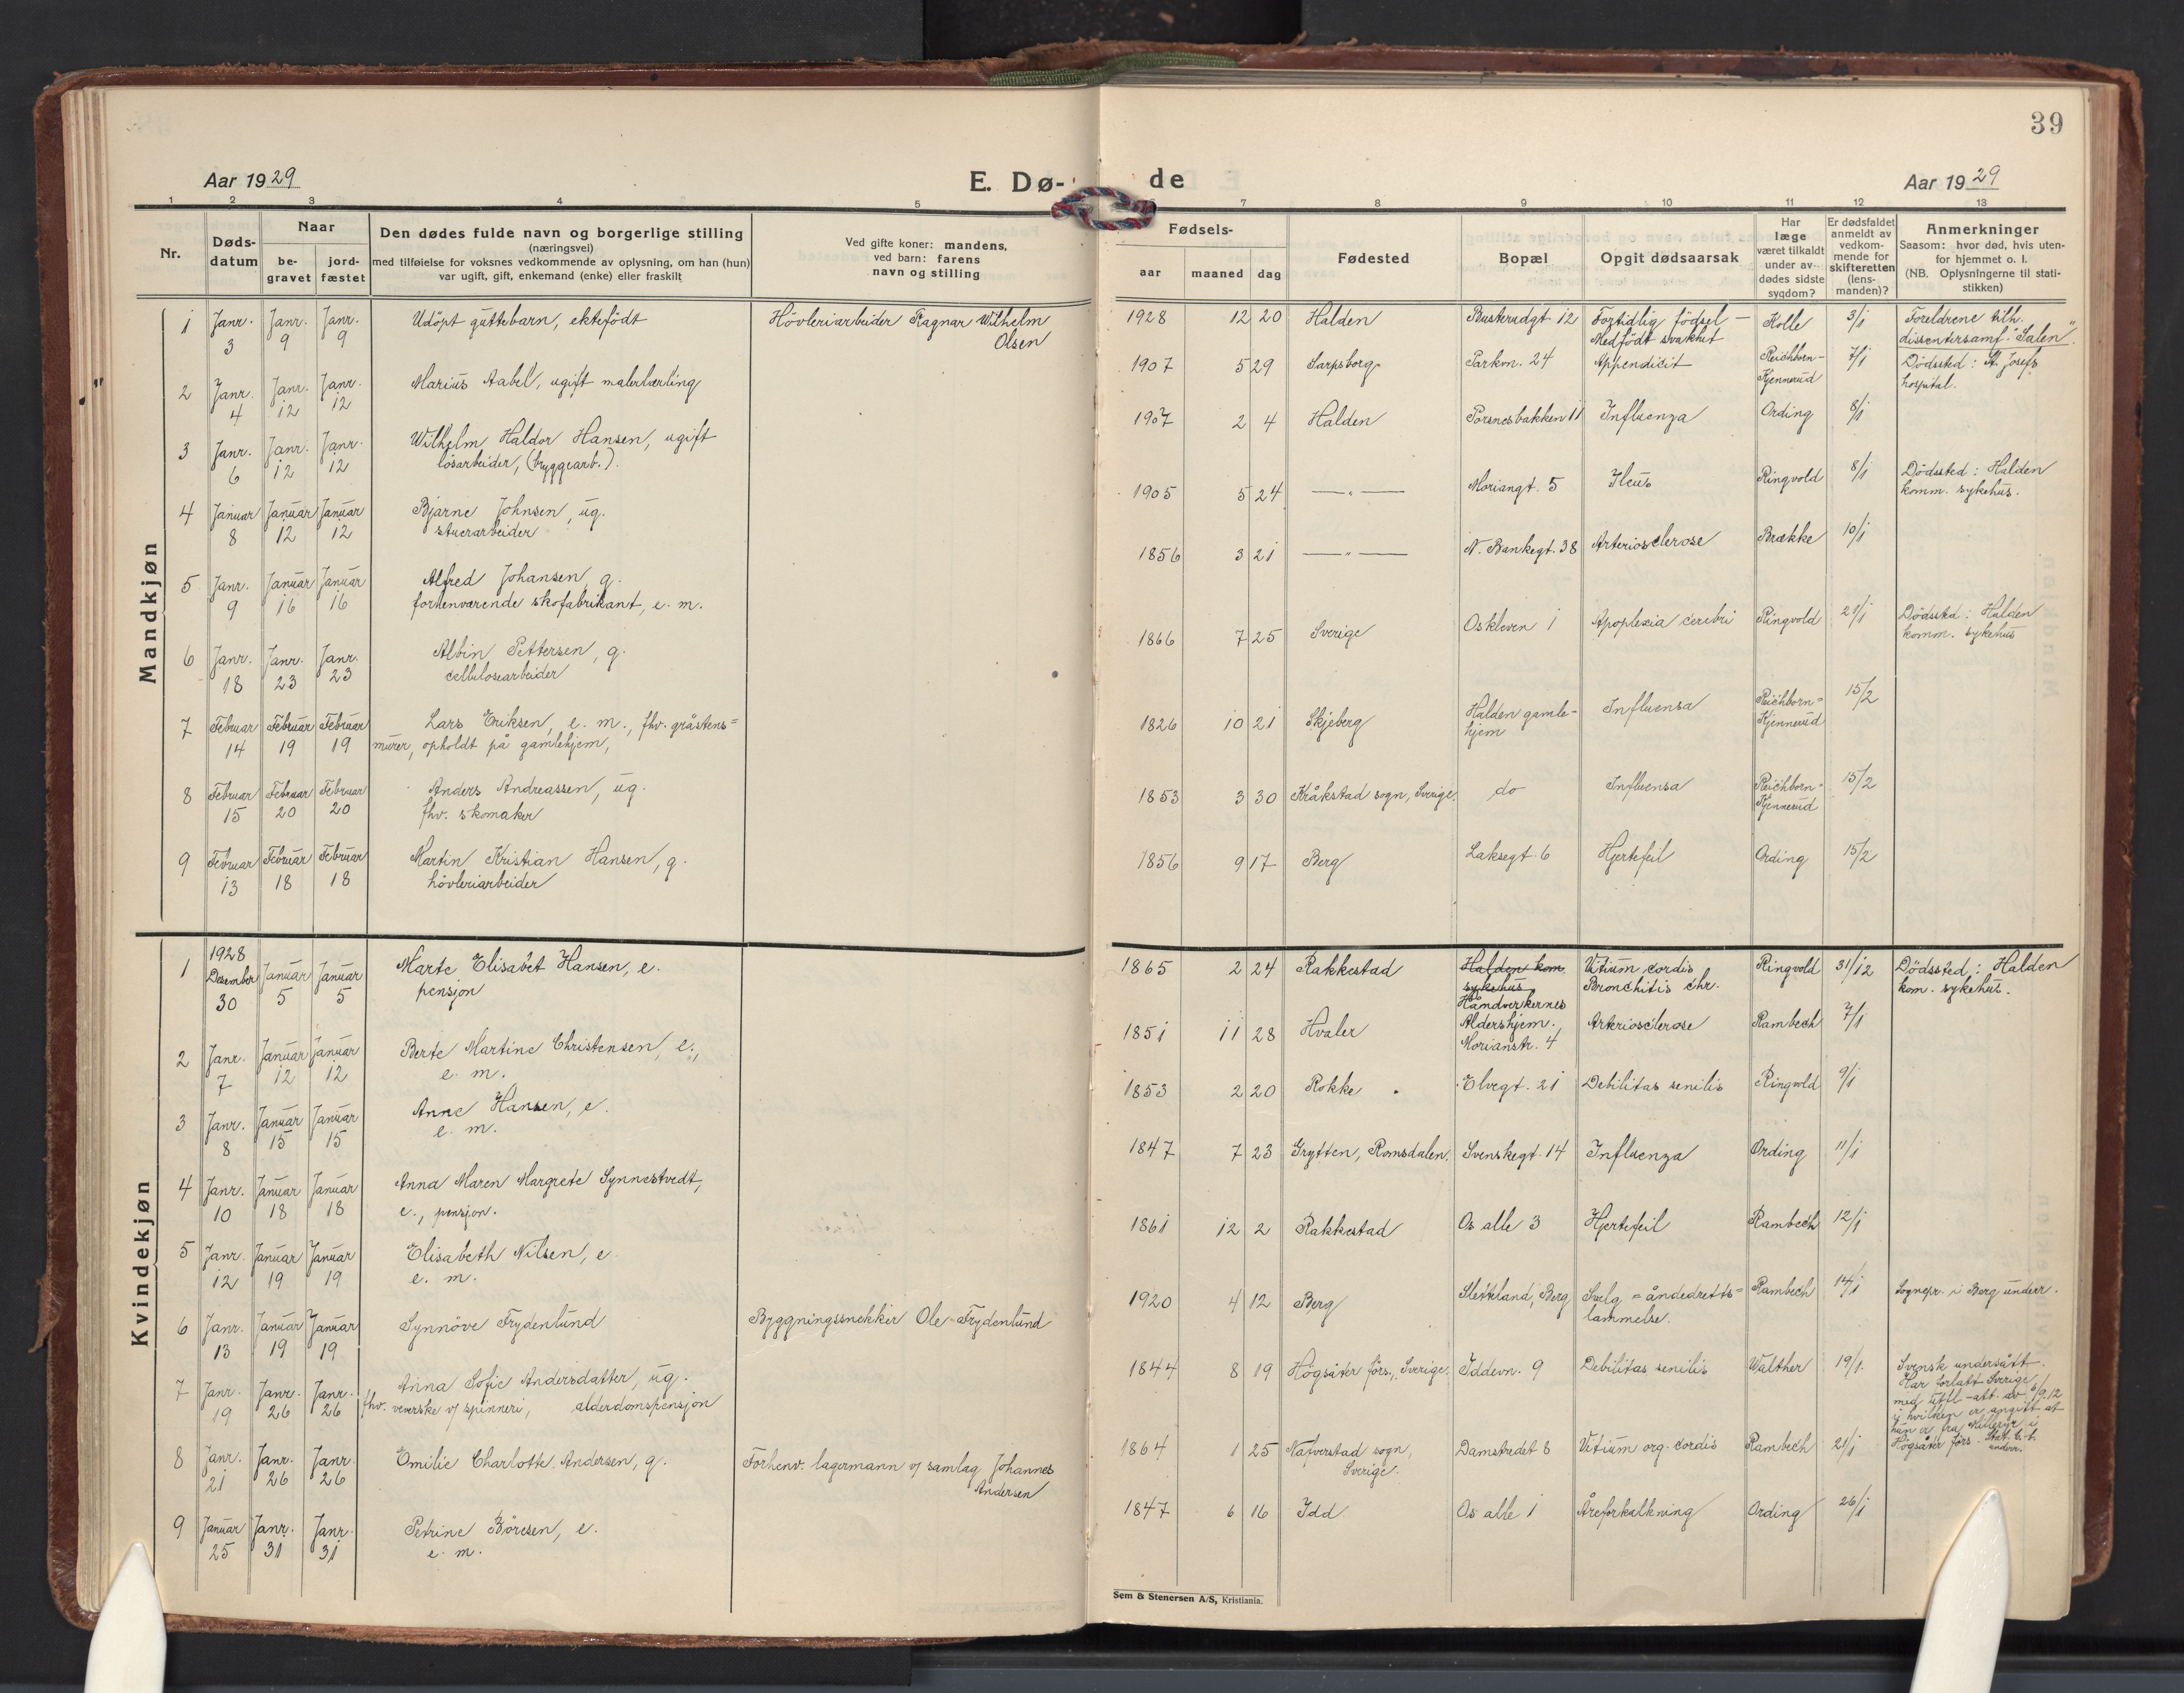 39
Aar 1929
E. Dø-
de
Aar 1929
1 2 3 4 5
7 8 9 10 11 12 13
Nr.
Døds-
datum
Naar
be-
gravet
jord-
fæstet
Den dødes fulde navn og borgerlige stilling
(næringsvei)
med tilføielse for voksnes vedkommende av oplysning, om han (hun)
var ugift, gift, enkemand (enke) eller fraskilt
Ved gifte koner: mandens,
ved barn: farens
navn og stilling
Fødsels-
aar maaned dag
Fødested
Bopæl
Opgit dødsaarsak
Har
læge
været tilkaldt
under av-
dødes sidste
sygdom?
Er dødsfaldet
anmeldt av
vedkom-
mende for
skifteretten
(lens-
manden)?
Anmerkninger
Saasom: hvor død, hvis uten-
for hjemmet o. l.
(NB. Oplysningerne til stati-
stikken)
Mandkjøn
1 Janr. 3 Janr. 9 Janr. 9 Udöpt guttebarn, ektefödt Hövleriarbeider Ragnar Wilhelm
Olsen
1928 12 20 Halden Busterudgt 12 Fortidlig födsel —
Medfödt svakhet
Kolle 3/1 Foreldrene tilh.
dissentersamf. "Salen".
2 Janr. 4 Janr. 12 Janr. 12 Marius Aabel, ugift malerlærling
1907 5 29 Sarpsborg Parkvn. 24 Appendicit Reichborn-
Kjennerud
7/1 Dödssted: St. Josefs
hospital.
3 Janr. 6 Janr. 12 Janr. 12 Wilhelm Haldor Hansen, ugift
lösarbeider, (bryggearb.).
1907 2 4 Halden Porsnesbakken 11 Influenza Ording 8/1
4 Januar 8 Januar 12 Januar 12 Bjarne Johnsen, ug.
stuerarbeider
1905 5 24 —"— Moriangt. 5 Ileus Ringvold 8/1 Dödssted: Halden
komm. sykehus.
5 Janr. 9 Januar 16 Januar 16 Alfred Johansen, g.
forhenværende skofabrikant, e. m.
1856 3 21 —"— N. Bankegt. 38 Arteriosclerose Brække 10/1
6 Janr. 18 Janr. 23 Janr. 23 Albin Pettersen, g.
cellulosearbeider
1866 7 25 Sverige Oskleven 1 Apoplexia cerebri Ringvold 21/1 Dödssted: Halden
komm. sykehus
7 Februar 14 Februar 19 Februar 19 Lars Eriksen, e. m., fhv. gråstens=
murer, opholdt på gamlehjem,
1826 10 21 Skjeberg Halden gamle-
hjem
Influensa Reichborn=
Kjennerud
15/2
8 Februar 15 Februar 20 Februar 20 Anders Andreassen, ug.
fhv. skomaker
1853 3 30 Kråkstad sogn, Sverige. do Influensa Reichborn=
Kjennerud
15/2
9 Februar 13 Februar 18 Februar 18 Martin Kristian Hansen, g.
hövleriarbeider
1856 9 17 Berg Laksegt. 6 Hjertefeil Ording 15/2
Kvindekjøn
1 1928 Desember 30 Januar 5 Januar 5 Marte Elisabet Hansen, e.
pensjon
1865 2 24 Rakkestad Halden kom.
sykehus
Vitium cordis
Bronchitis chr.
Ringvold 31/12 Dödssted: Halden
kom. sykehus.
2 Janr. 7 Januar 12 Januar 12 Berte Martine Christensen, e.,
e. m.
1851 11 28 Hvaler Håndverkernes
Aldershjem.,
Morianstr. 4
Arteriosclerose Rambech 7/1
3 Janr. 8 Januar 15 Januar 15 Anne Hansen, e.
e. m.
1853 2 20 Rokke Elvegt. 21 Debilitas senilis Ringvold 9/1
4 Janr. 10 Januar 18 Januar 18 Anna Maren Margrete Synnestvedt,
e., pensjon.
1847 7 23 Grytten, Romsdalen. Svenskegt. 14 Influenza Ording 11/1
5 Janr. 12 Januar 19 Januar 19 Elisabeth Nilsen, e.
e. m.
1861 12 2 Rakkestad Os alle 3 Hjertefeil Rambech 12/1
6 Janr. 13 Januar 19 Januar 19 Synnöve Frydenlund Byggningssnekker Ole Frydenlund
1920 4 12 Berg Slettland, Berg Svelg = åndedretts=
lammelse.
Rambech 14/1 Sognepr. i Berg underr.
7 Janr. 19 Janr. 26 Janr. 26 Anna Sofie Andersdatter, ug.
fhv. veverske v/ spinneri, alderdomspensjon
1844 8 19 Högsäter förs., Sverige. Iddevn. 9 Debilitas senilis Walther 19/1. Svensk undersått.
Har forlatt Sverige
med -att. av 6/9 12
i hvilken er angitt at
hun er fra i
Högsäter förs.
underr.
8 Janr. 21 Janr. 26 Janr. 26 Emilie Charlotte Andersen, g. Forhenv. lagermann v/ samlag Johannes
Andersen
1864 1 25 Nafverstad sogn,
Sverige.
Damstredet 8 Vitium org. cordis Rambech 21/1
9 Januar 25 Janr. 31 Janr. 31 Petrine Böresen, e.
e. m.
1847 6 16 Idd Os alle 1 Åreforkalkning Ording 26/1
Sem & Stenersen A/S, Kristiania.